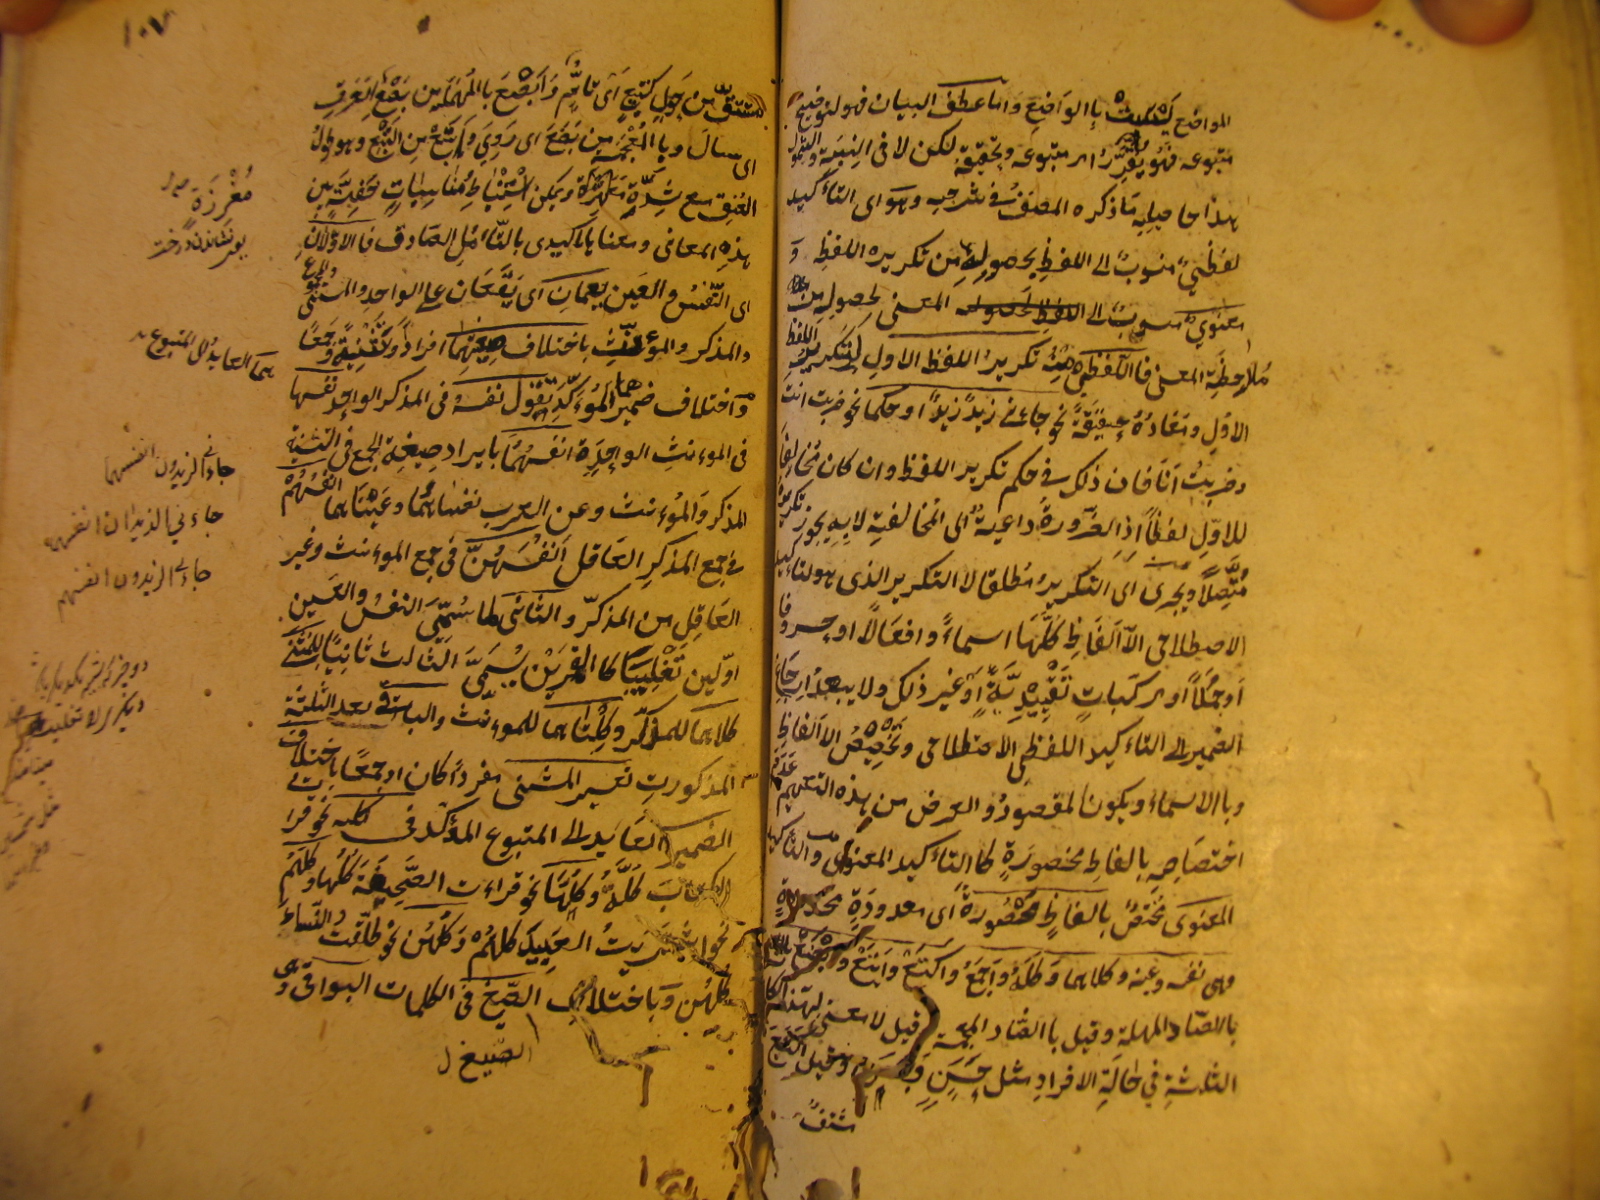 المواضع بالواضع واما عطف البيان فهو لتوضيح
متبوعه فهو يقرر امر متبوعه وتحقيقه لكن لا فى النسبة والشمول
هذا حاصل ما ذكره المصنف فى شرحه وهو اى التاكيد
لفظي منسوب الى اللفظ لحصوله من تكرير اللفظ و
معنوي منسوب الى المعنى لحصوله من
ملاحظة المعنى فاللفظي منه تكرير اللفظ الاول اى تكرير اللفظ
الاول ومعاده حقيقة نحو جاءنى زيد زيد او حكما نحو ضربت انت
وضربت انا فان ذلك فى حكم تكرير اللفظ وان كان مخالفا
للاول لفظا اذ الضرورة داعية الى المخالفة لانه لا يجوز تكريره
متصلا ويجرى اى التكرير مطلقا لا التكرير الذى هو التاكيد
الاصطلاحى الالفاظ كلها اسماء وافعالا او حروفا
او جملا او مركبات تقييدية او غير ذلك ولا يبعد ارجاع
الضمير الى التاكيد اللفظى الاصطلاحى وتخصيص الالفاظ
وبالاسماء ويكون المقصود والغرض من هذه التعميم عدم
اختصاصه بالفاظ محصورة كالتاكيد المعنوى والتاكيد
المعنوى مختص بالفاظ محصورة اى معدودة محدودة
وهى نفسه وعينه وكلاهما وكله واجمع واكتع وابتع وابصع
بالصاد المهملة وقيل بالضاد المعجمة قيل لا معنى لهذه
الثلثة فى حالة الافراد مثل حسن بسن وقيل اكتع
مشتق
١٠٧
مشتق من حول كتيع اى تام وابصع بالمهملة من بصع العرق
اى سال وبالمعجمة من بضع اى روى وابتع من البتع وهو طول
العنق مع شدة مغرزه ويمكن استنباط مناسبات خفية بين
هذه المعانى ومعناها التاكيدى بالتامل الصادق فالاولان
اى النفس والعين يعمان اى يقعان على الواحد والمثنى والمجموع
والمذكر والمؤنث باختلاف صيغتهما افرادا وتثنية وجمعا
واختلاف ضميرهما المؤكد تقول نفسه فى المذكر الواحد نفسها
فى المؤنث الواحدة انفسهما بايراد صيغة الجمع فى التثنية
المذكر والمؤنث وعن العرب نفساهما وعيناهما انفسهم
فى جمع المذكر العاقل انفسهن فى جمع المؤنث وغير
العاقل من المذكر والثانى لما سمى النفس والعين
اولين تغليبا كالقمرين يسمى الثالث ثانيا للمثنى
كلاهما للمذكر وكلتاهما للمؤنث والباقى بعد الثلثة
المذكورات لغير المثنى مفردا كان او جمعا باختلاف
الضمير العايد الى المتبوع المؤكد فى كله نحو قرات
الكتاب كله وكلها نحو قرات الصحيفة كلها وكلهم
نحو اشتريت العبيد كلهم وكلهن نحو طلقت النساء
كلهن وباختلاف الصيغ فى الكلمات البواقى وهى
الصيغ
مغرزة
هما العايد الى المتبوع
جاءنى الزيدون انفسهما
جاءنى الزيدان انفسهما
جاءنى الزيدون انفسهم